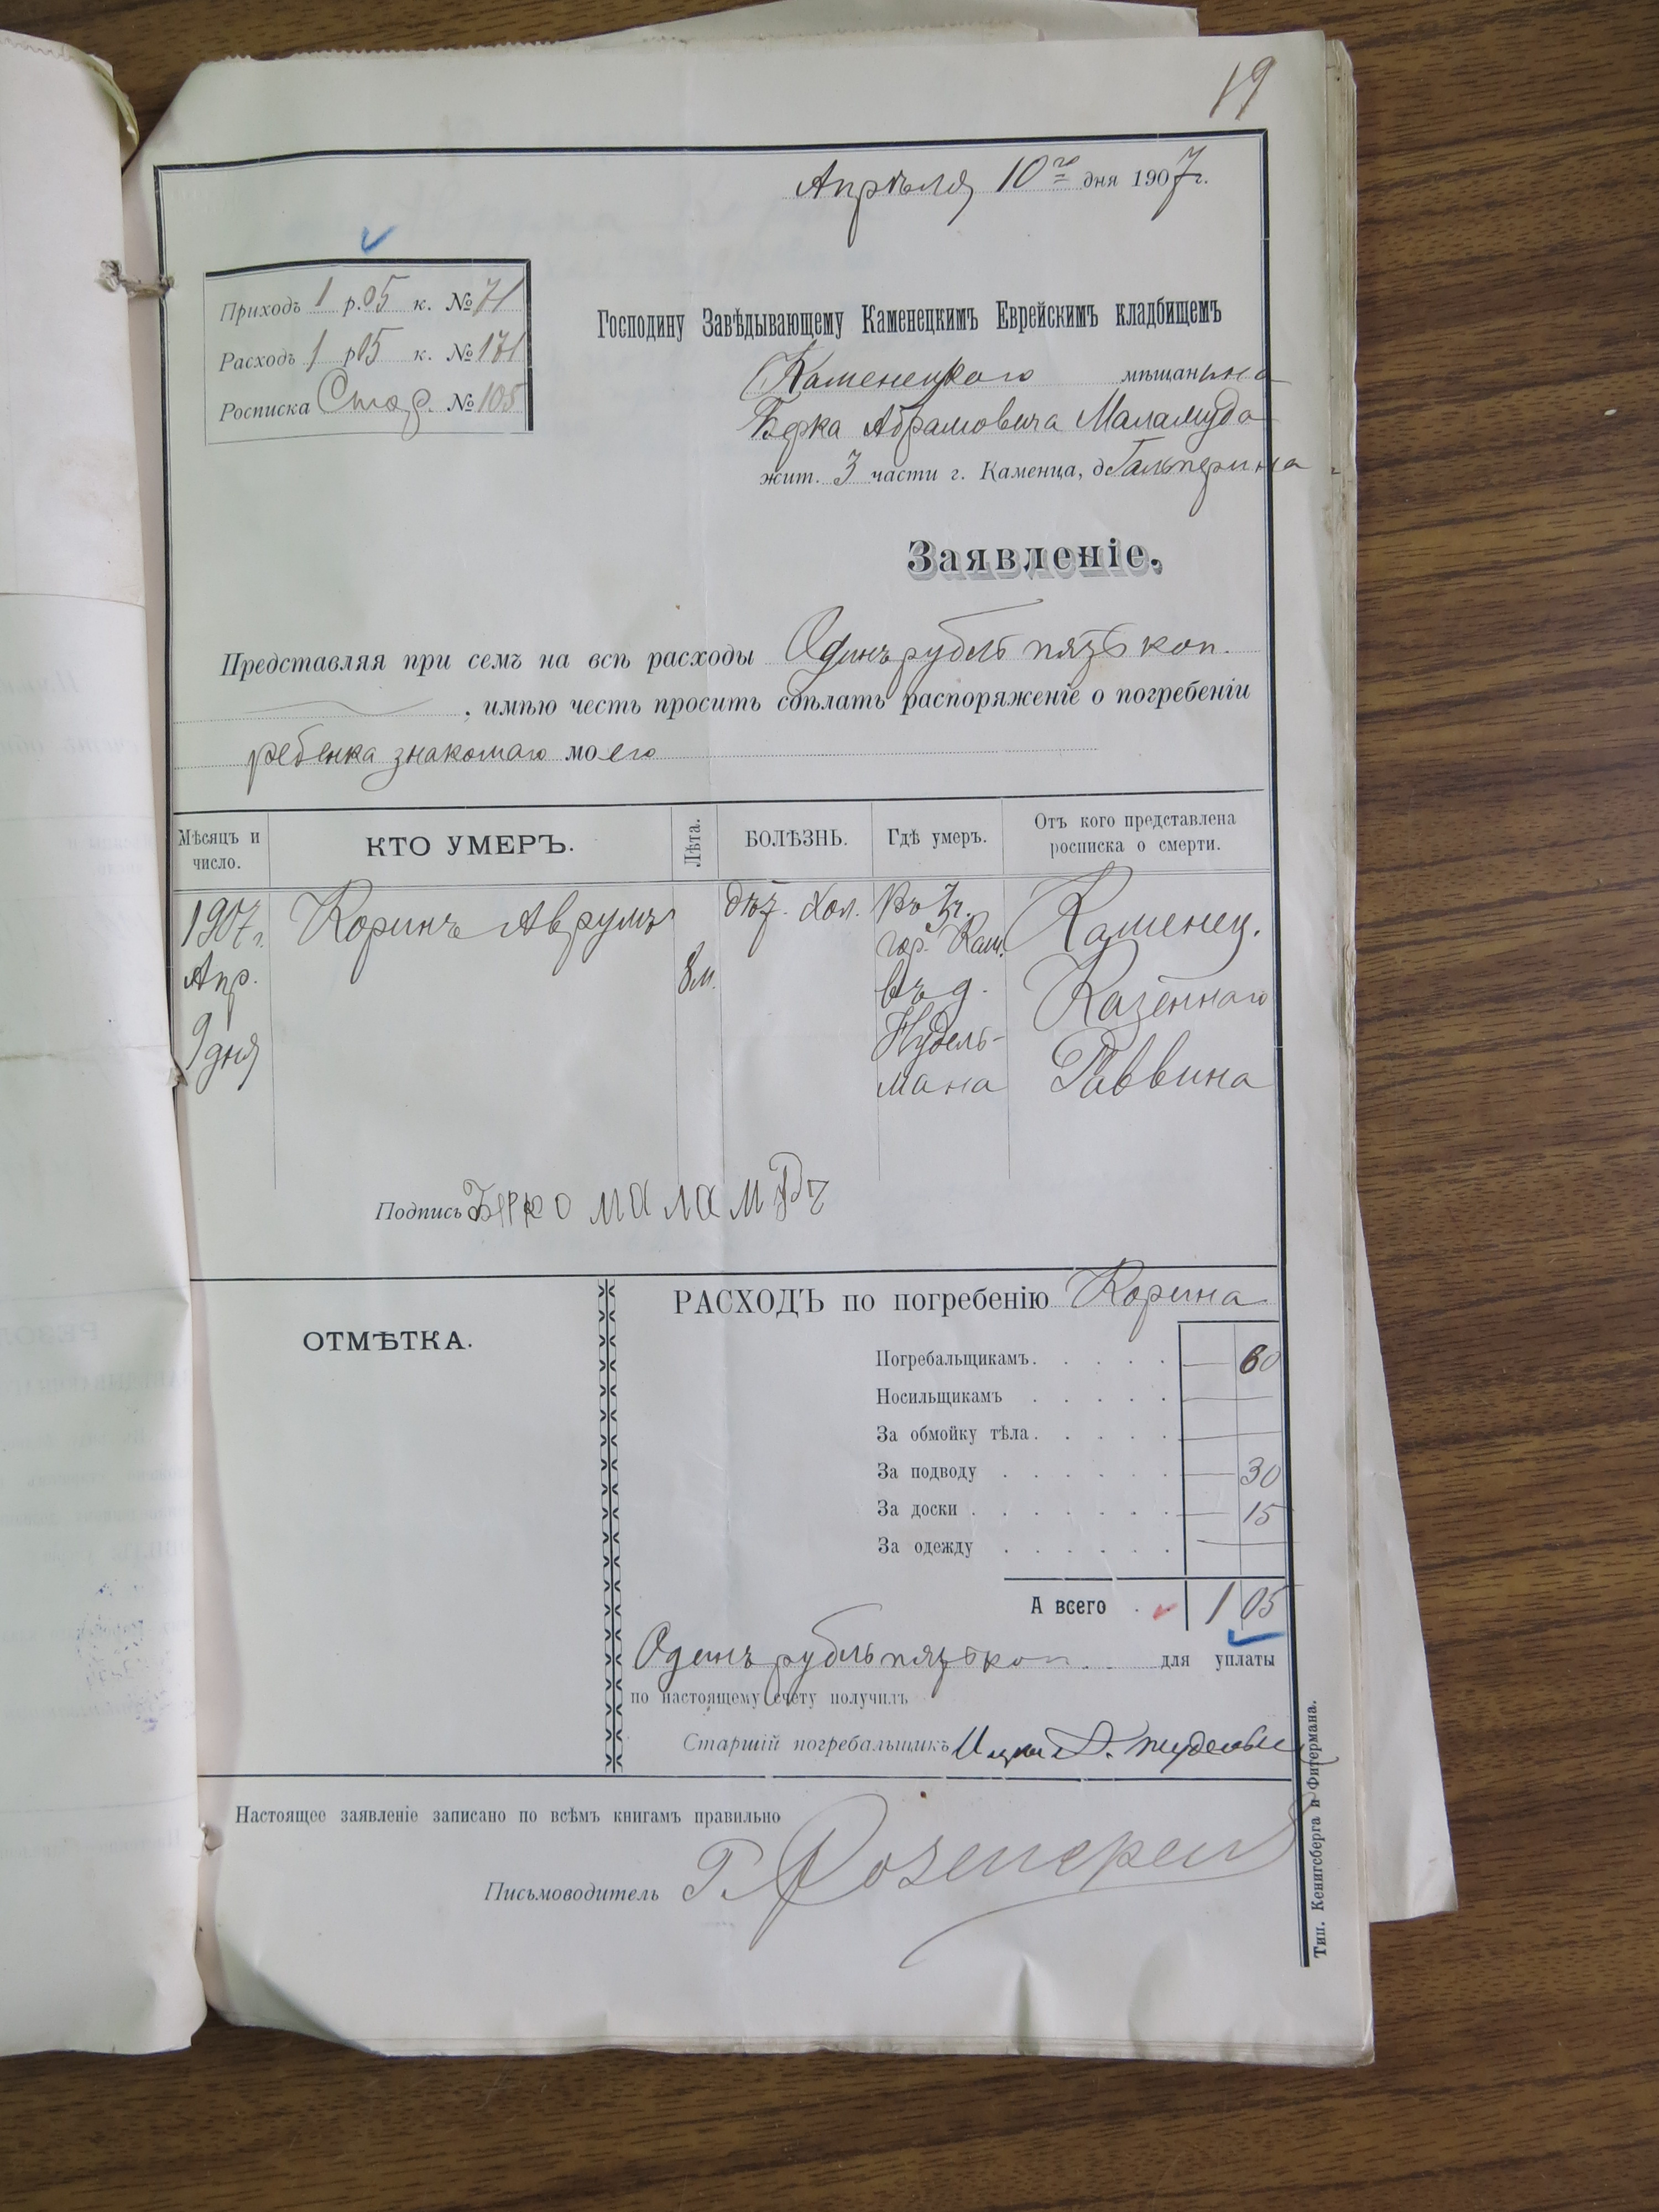 19
Апрѣля 10го дня 1907 г.
Приходъ 1 р. 05 к. № 71
Расходъ 1 р 05 к. № 171
Росписка Стар. № 105
Господину Завѣдывающему Каменецкимъ Еврейскимъ кладбищемъ
Каменецкого мѣщанина
Берка Абрамовича Маламуда
жит. 3 части г. Каменца, д Гальперина
Заявленіе.
Представляя при семъ на всѣ расходы Одинъ рубль пять коп.
, имѣю честь просить сдѣлать распоряженіе о погребеніи
ребенка знакомаго моего
Мѣсяцъ и число.
КТО УМЕРЪ.
Лѣта.
БОЛѢЗНЬ.
Гдѣ умеръ.
Отъ кого представлена росписка о смерти.
1907 г. Апр. 9 дня
Коринъ Аврумъ
8 м.
дѣт. хол.
Въ гор. Кам. въ д. Нудель-мана
Каменец. Казеннаго Раввина
Подпись Берко маламудъ
ОТМѢТКА.
РАСХОДЪ по погребенію Корина
Погребальщикамъ. — 60
Носильщикамъ —
За обмойку тѣла. —
За подводу — 30
За доски — 15
За одежду —
А всего 1 05
Одинъ рубль пять коп. для уплаты
по настоящему счету получилъ
Старшій погребальщикъ
Настоящее заявленіе записано по всѣмъ книгамъ правильно
Письмоводитель Г. Розенгрен
Тип. Кенигсберга и Фитермана.